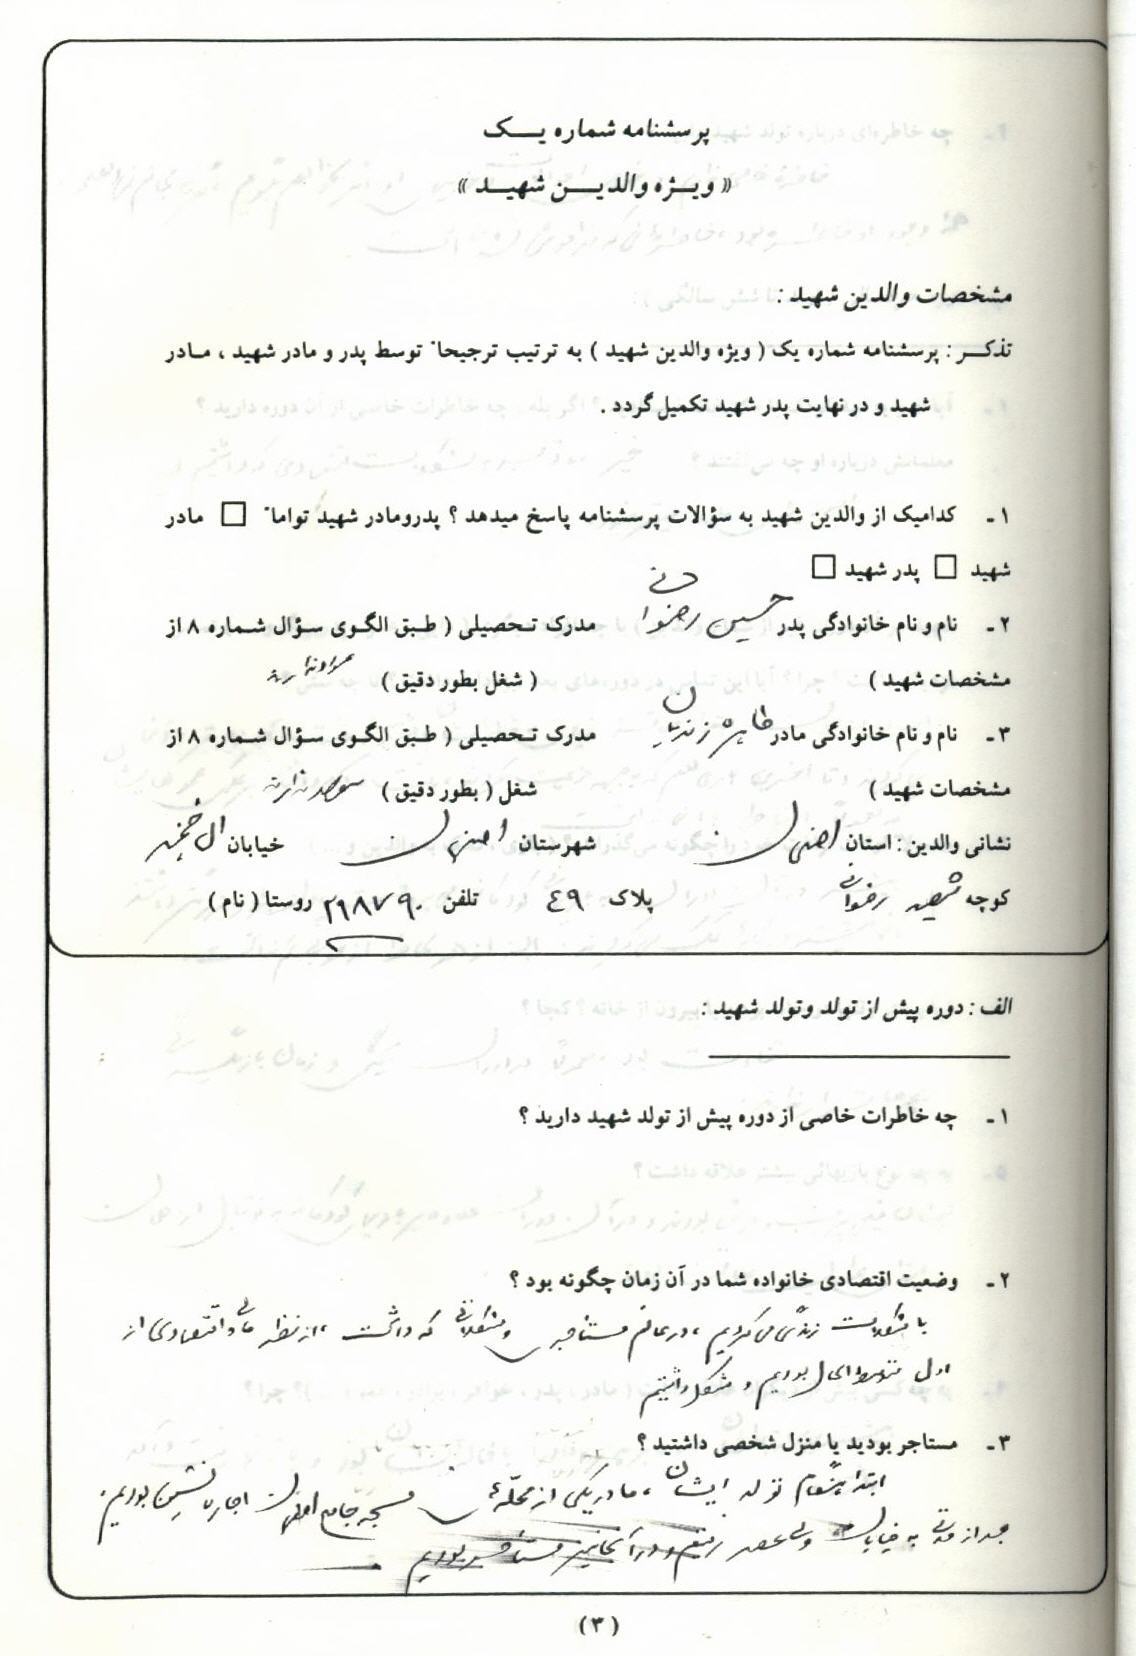 پرسشنامه شماره یک
« ویژه والدین شهید »
مشخصات والدین شهید :
تذکر : پرسشنامه شماره یک ( ویژه والدین شهید ) به ترتیب ترجیحاً توسط پدر و مادر شهید ، مادر
شهید و در نهایت پدر شهید تکمیل گردد .
۱ - کدامیک از والدین شهید به سؤالات پرسشنامه پاسخ میدهد ؟ پدرومادر شهید تواماً □ مادر
شهید □ پدر شهید □
۲ - نام و نام خانوادگی پدر حسین رضوانی مدرک تحصیلی ( طبق الگوی سؤال شماره ۸ از
مشخصات شهید ) ( شغل بطور دقیق )
۳ - نام و نام خانوادگی مادر طاهره زندیان مدرک تحصیلی ( طبق الگوی سؤال شماره ۸ از
مشخصات شهید ) شغل ( بطور دقیق )
نشانی والدین : استان اصفهان شهرستان اصفهان خیابان
کوچه شهید رضوانی پلاک ۴۹ تلفن ۲۹۸۷۹۰ روستا ( نام )
الف : دوره پیش از تولد وتولد شهید :
۱ - چه خاطرات خاصی از دوره پیش از تولد شهید دارید ؟
۲ - وضعیت اقتصادی خانواده شما در آن زمان چگونه بود ؟
با مشکلات زندگی می کردیم ، در عالم مستاجری و مشکلاتی که داشت ، از نظر مالی و اقتصادی از
اول متوسط الحال بودیم و مشکل داشتیم
۳ - مستاجر بودید یا منزل شخصی داشتید ؟
ابتدا هنگام تولد ایشان ، ما در یکی از محله های مسجد جامع اصفهان اجاره نشین بودیم .
بعد از مدتی به خیابان ولی عصر رفتیم و در آنجا نیز مستاجر بودیم
( ۳ )